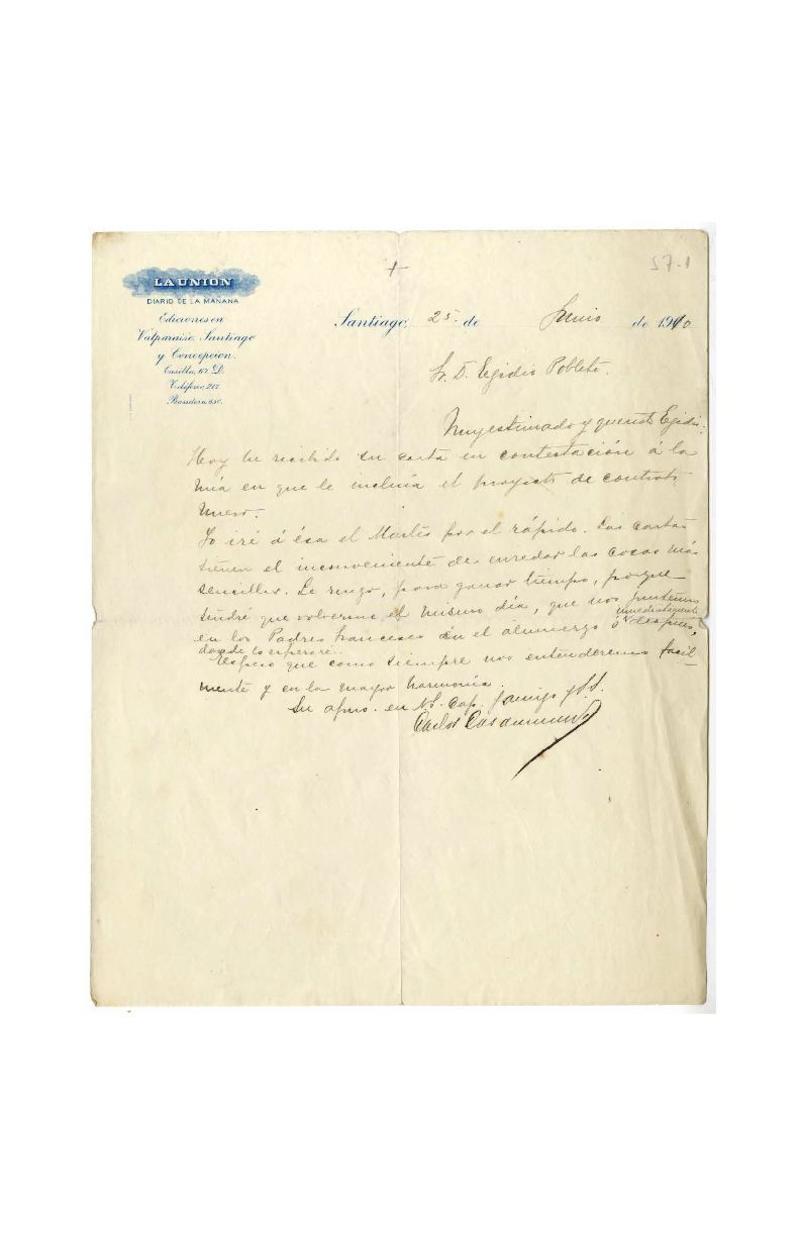 +
57-1
LA UNION
DIARIO DE LA MAÑANA
Ediciones en
Valparaíso, Santiago
y Concepcion.
Casilla, 67 D.
Teléfono, 217
Santiago, 25 de Junio de 1910
Sr. D. Egidio Poblete.
Muy estimado y querido Egidio:
Hoy he recibido su carta en contestación á la
mía en que le incluía el proyecto de contrato
nuevo.
Yo iré á ésa el Martes por el rápido. Las cartas
tienen el inconveniente de enredar las cosas más
sencillas. Le ruego, para ganar tiempo, porque
tendré que volverme el mismo día, que nos juntemos
en los Padres Franceses en el almuerzo ó inmediatamente después,
donde lo esperaré.
Espero que como siempre nos entenderemos facil-
mente y en la mayor harmonía.
Su afmo. en N.S. Cap. y amigo y S.S.
Carlos Casanueva